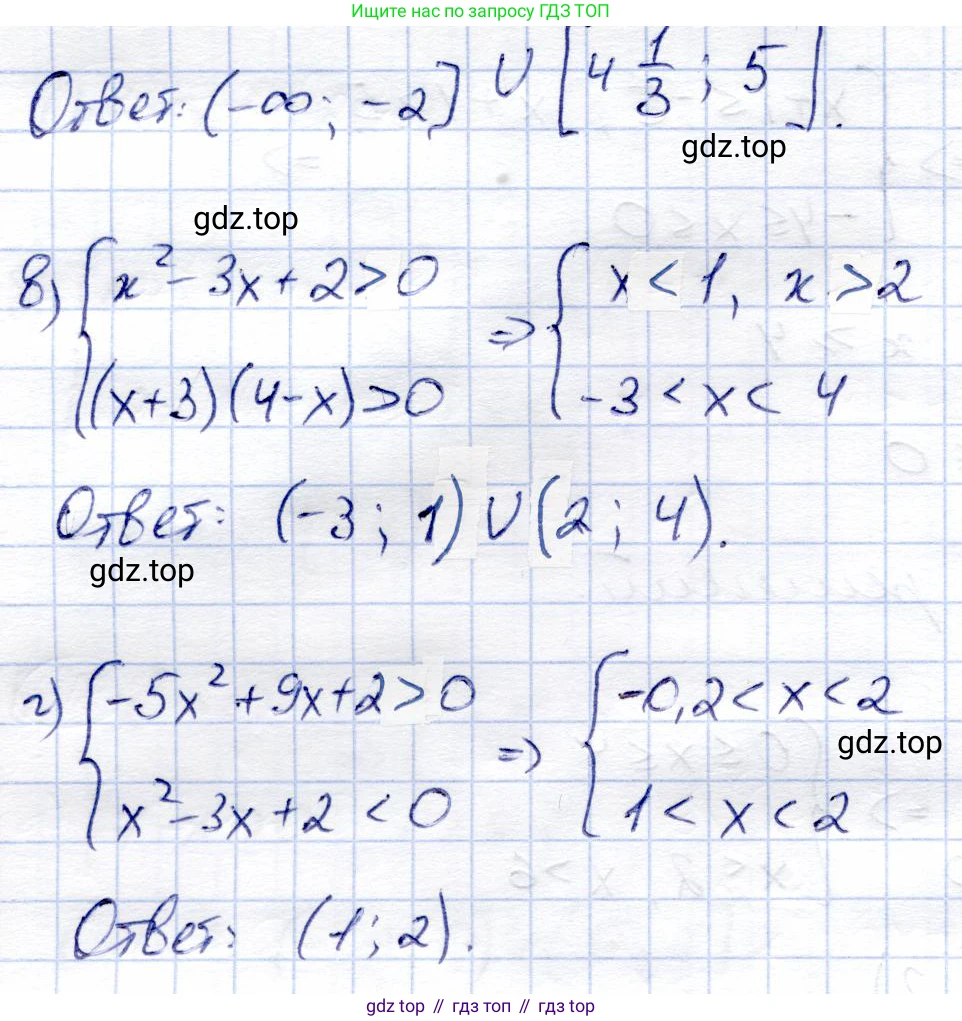 Ищите нас по запросу ГДЗ ТОП
Ответ: (-∞; -2] ∪ [4 1/3; 5].
gdz.top
gdz.top
в) { x² - 3x + 2 > 0 ⇒ { x < 1, x > 2
(x+3)(4-x) > 0 -3 < x < 4
Ответ: (-3; 1) ∪ (2; 4).
gdz.top
г) { -5x² + 9x + 2 > 0 ⇒ { -0,2 < x < 2
gdz.top
x² - 3x + 2 < 0 1 < x < 2
Ответ: (1; 2).
gdz.top // гдз топ // гдз top